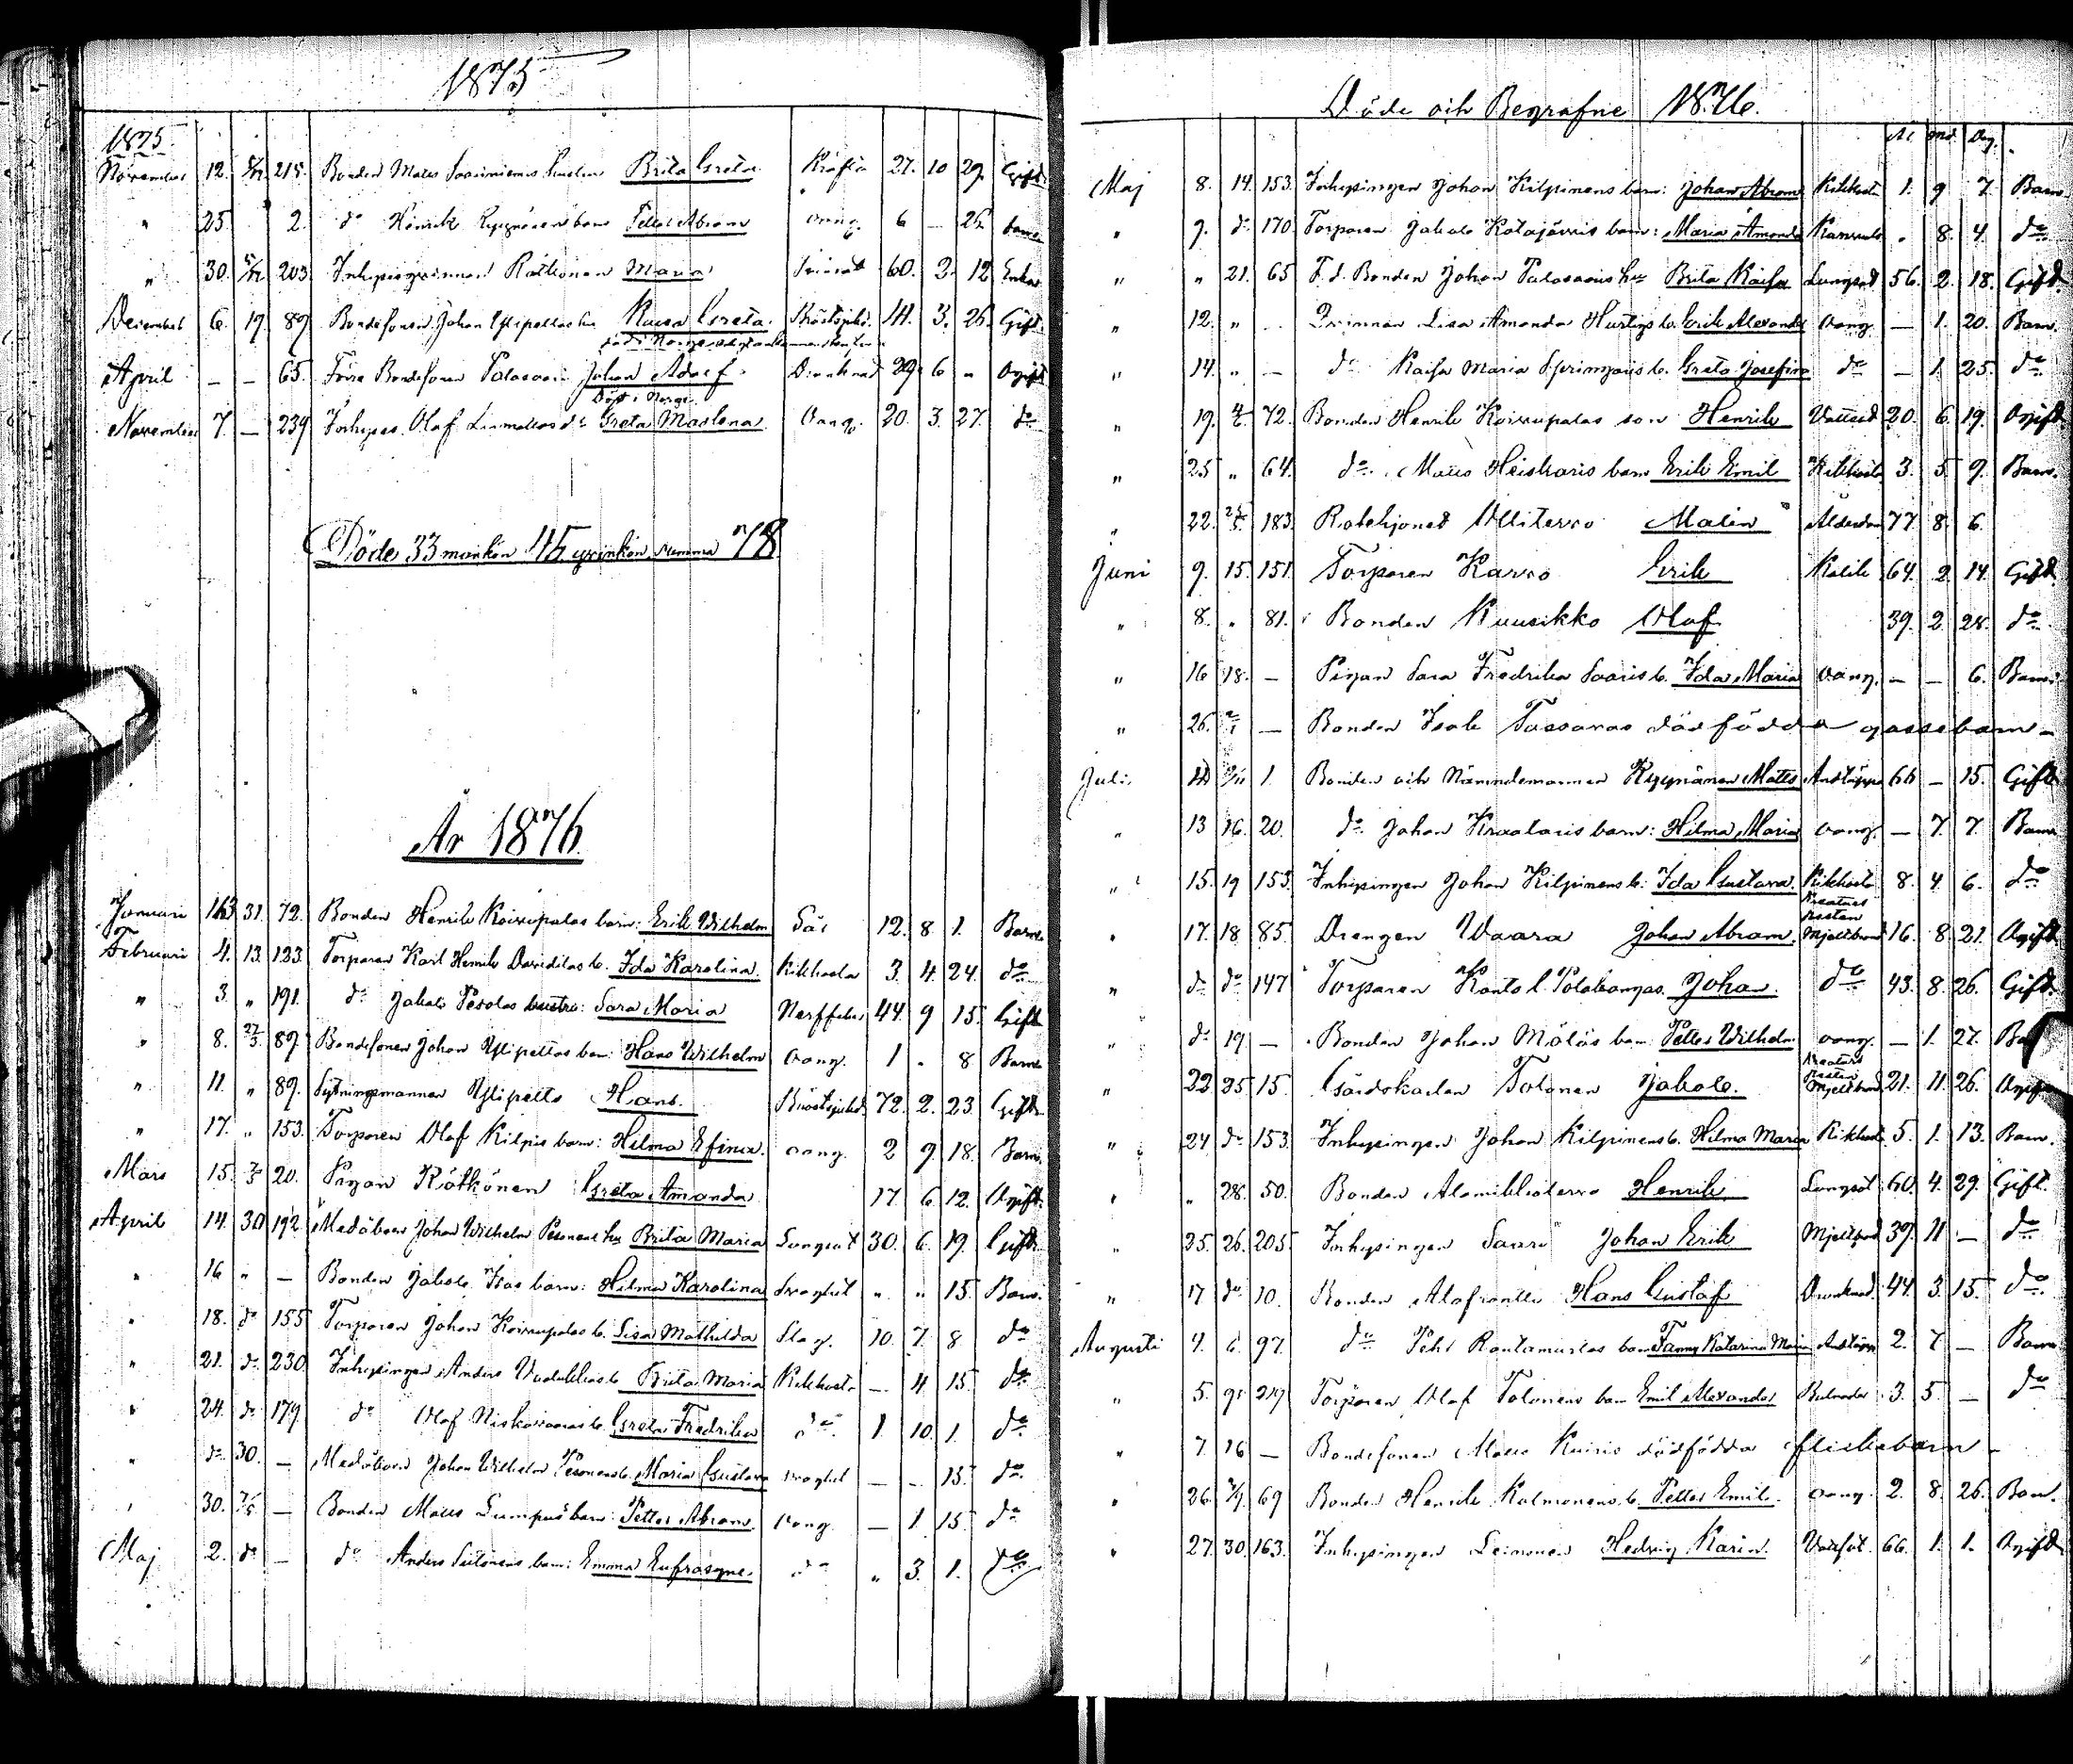 1875
1875
November 12. 5/12 215. Bonden Matts hustru Brita Greta Kräfta 27. 10 29. Gift
" 25 2. do Henrik Kyynäräs barn Petter Abram oang. 6 — 25 barn
" 30. 5/12 203 Inhyseqvinnan Rötkönen Maria 60. 3. 12 Enka
December 6. 19. 89. Bondesonen Johan Ylipettas hu Kaisa Greta. Bröstsjukd. 41. 3. 26. Gift
April — — 65. Förre Bondesonen Palovaara Johan Adolf. Drunknad 29. 6 " Ogift
Död i Norge.
November 7. — 239 Inhyses. Olaf dr Greta Maglena Oang. 20. 3. 27. do
Döde 33 mankön 45 qvinkön summa 78
År 1876
Januari 31. 72. Bonden Henrik Koivupalos barn: Erik Wilhelm Sår 12. 8 1. Barn
Februari 4. 13. 123. Torparen Karl Henrik Daviditas b. Ida Karolina. Kikhosta 3. 4. 24. do
" 3. " 191. do Jakob Pesolas hustru: Sara Maria Nerffeber 44. 9 15. Gift
" 8. 27/3. 89. Bondesonen Johan Ylipettas barn: Hans Wilhelm oang. 1 . 8 Barn
" 11. " 89. Sytningsmannen Ylipetto Hans. Bröstsjukd. 72. 2. 23. Gift
" 17. " 153. Torparen Olaf Kilpis barn: Hilma Efina. oang. 2 9. 18. Barn.
Mars 15. 20. Pigan Rötkönen Greta Amanda 17. 6 12. Ogift.
April 14. 30 192. Johan Wilhelm Pesonens hu Brita Maria Lungsot 30. 6. 19. Gift
" 16 " — Bonden Jakob Isos barn: Hilma Karolina " " 15. Barn.
" 18. do 155 Torparen Johan Koivupalos b. Lisa Mathilda Slag. 10. 7. 8 do
" 21. do 230 Inhysingen Anders b. Brita Maria Kikhosta — 4 15. do
" 24. do 179 do Olaf Niskavaaras b. Greta Fredrika do 1. 10. 1. do
" do 30. — Johan Wilhelm Pesonens b. Maria Gustava — — 15. do
" 30. 7/5 — Bonden Matts Lumpus barn: Petter Abram. oang — 1. 15. do
Maj 2. do — do Anders barn: Emma Eufrosyne. do " 3. 1. do
Döde och Begrafne 1876.
År. Mnd. Dag.
Maj 8. 14. 153. Inhysingen Johan Kilpinens barn: Johan Abram Kikhosta 1. 9 7. Barn
" 9. do 170 Torparen Jakob Katajärvis barn: Maria Amanda . 8. 4. do
" " 21. 65 F. d. Bonden Johan Palovaaris hu Brita Kaisa Lungsot 56. 2. 18. Gift.
" 12. " — Qvinnan Lisa Amanda Hurtigs b. Erik Alexander oang. — 1. 20. Barn.
" 14. " — do Kaisa Maria b. Greta Josefina do — 1. 25. do
" 19. 72. Bonden Henrik Koivupalos son Henrik Vattsot 20. 6. 19. Ogift
" 25 " 64. do Matts Heiskaris barn Erik Emil Kikhosta 3. 5. 9. Barn.
" 22. 183. Rotehjonet Yllitervo Malin Ålderdom 77. 8. 6.
Juni 9. 15. 151. Torparen Karvo Erik Kolik 64. 2 14. Gift
" 8. " 81. Bonden Kuusikko Olof 39. 2. 28. do
" 16 18. — Pigan Sara Fredrika Saaris b. Ida Maria oang. — — 6. Barn
" 26. 2/7 — Bonden Isak Tassaras dödfödda gossebarn —
Juli 1. Bonden och Nämndemannen Kyynäräs Matts Andtäppa 66 — 15. Gift
" 13 16. 20. do Johan barn: Hilma Maria oang. — 7. 7. Barn
" 15. 19 153. Inhysingen Johan Kilpinens b. Ida Gustava. Kikhosta 8. 4. 6. do
" 17. 18 85. Drengen Waara Johan Abram. Kreaturs Pesten Mjeltbrand 16. 8. 21. Ogift
" do do 147 Torparen Kanto l. Palokangas Johan. do 43. 8. 26. Gift.
" do 19 — Bonden Johan Mäläs barn Petter Wilhelm oang. — 1. 27. Ba
" 22 25 15 Gårdskarlen Tolonen Jakob. Kreaturs Pesten Mjeltbrand 21. 11. 26. Ogift
" 24 do 153. Inhysingen Johan Kilpinens b. Hilma Maria Kikhosta 5. 1. 13. Barn.
" " 28. 50. Bonden Henrik Lungsot 60. 4. 29. Gift.
" 25. 26. 205 Inhysingen Saari Johan Erik Mjeltbrand 39. 11 — do
" 17 do 10. Bonden Alafrantti Hans Gustaf Drunknad 44. 3. 15. do
Augusti 4. 6. 97. do Pehr Rantamaas barn Fanny Katarina Maria Andtäppa 2. 7 — Barn
" 5. 9. 219 Torparen Olof Tolonens barn Emil Alexander 3. 5. — do
" 7. 16 — Bondesonen Matts Kuiris dödfödda flickebarn —
" 26. 3/9 69 Bonden Henrik Kalmonens b. Petter Emil. oang. 2. 8. 26. Barn.
" 27. 30. 163. Inhysingen Leinonen Hedvig Karin. 66. 1. 1. Ogift